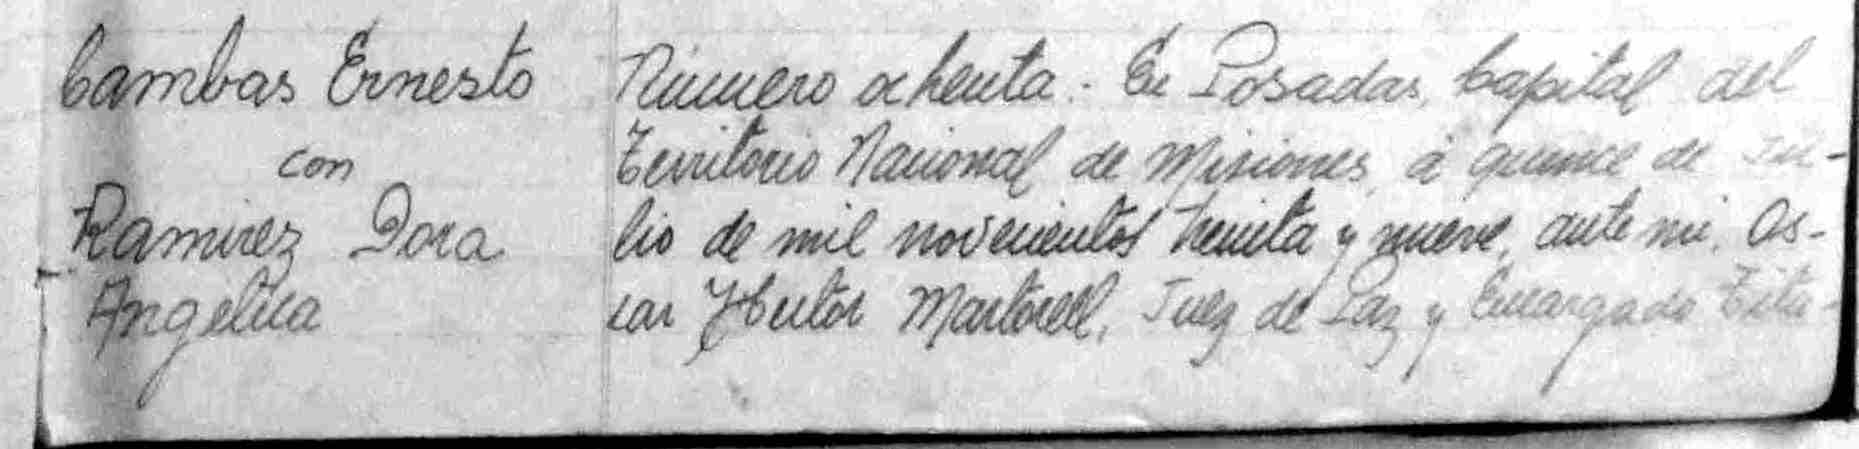 Cambas Ernesto
con
Ramirez Dora
Angelica
Número ochenta. En Posadas, Capital del
Territorio Nacional de Misiones, á quince de Ju-
lio de mil novecientos treinta y nueve, ante mi, Os-
car Hector Martorell, Juez de Paz y Encargado Titu-